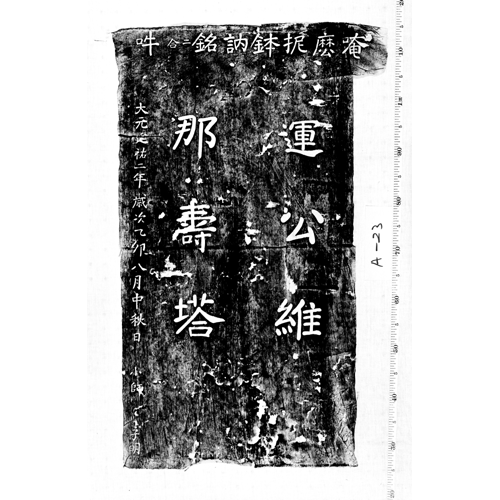 唵麽抳鉢訥銘二合吽
運公維
那壽塔
大元延祐二年歲次乙卯八月中秋日 小師
A-23